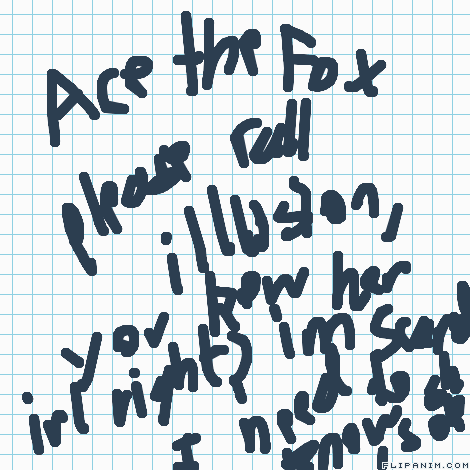 Ace the Fox
please read
illusion,
you knew her
irl right? im scared
I need to
know is
FLIPANIM.COM